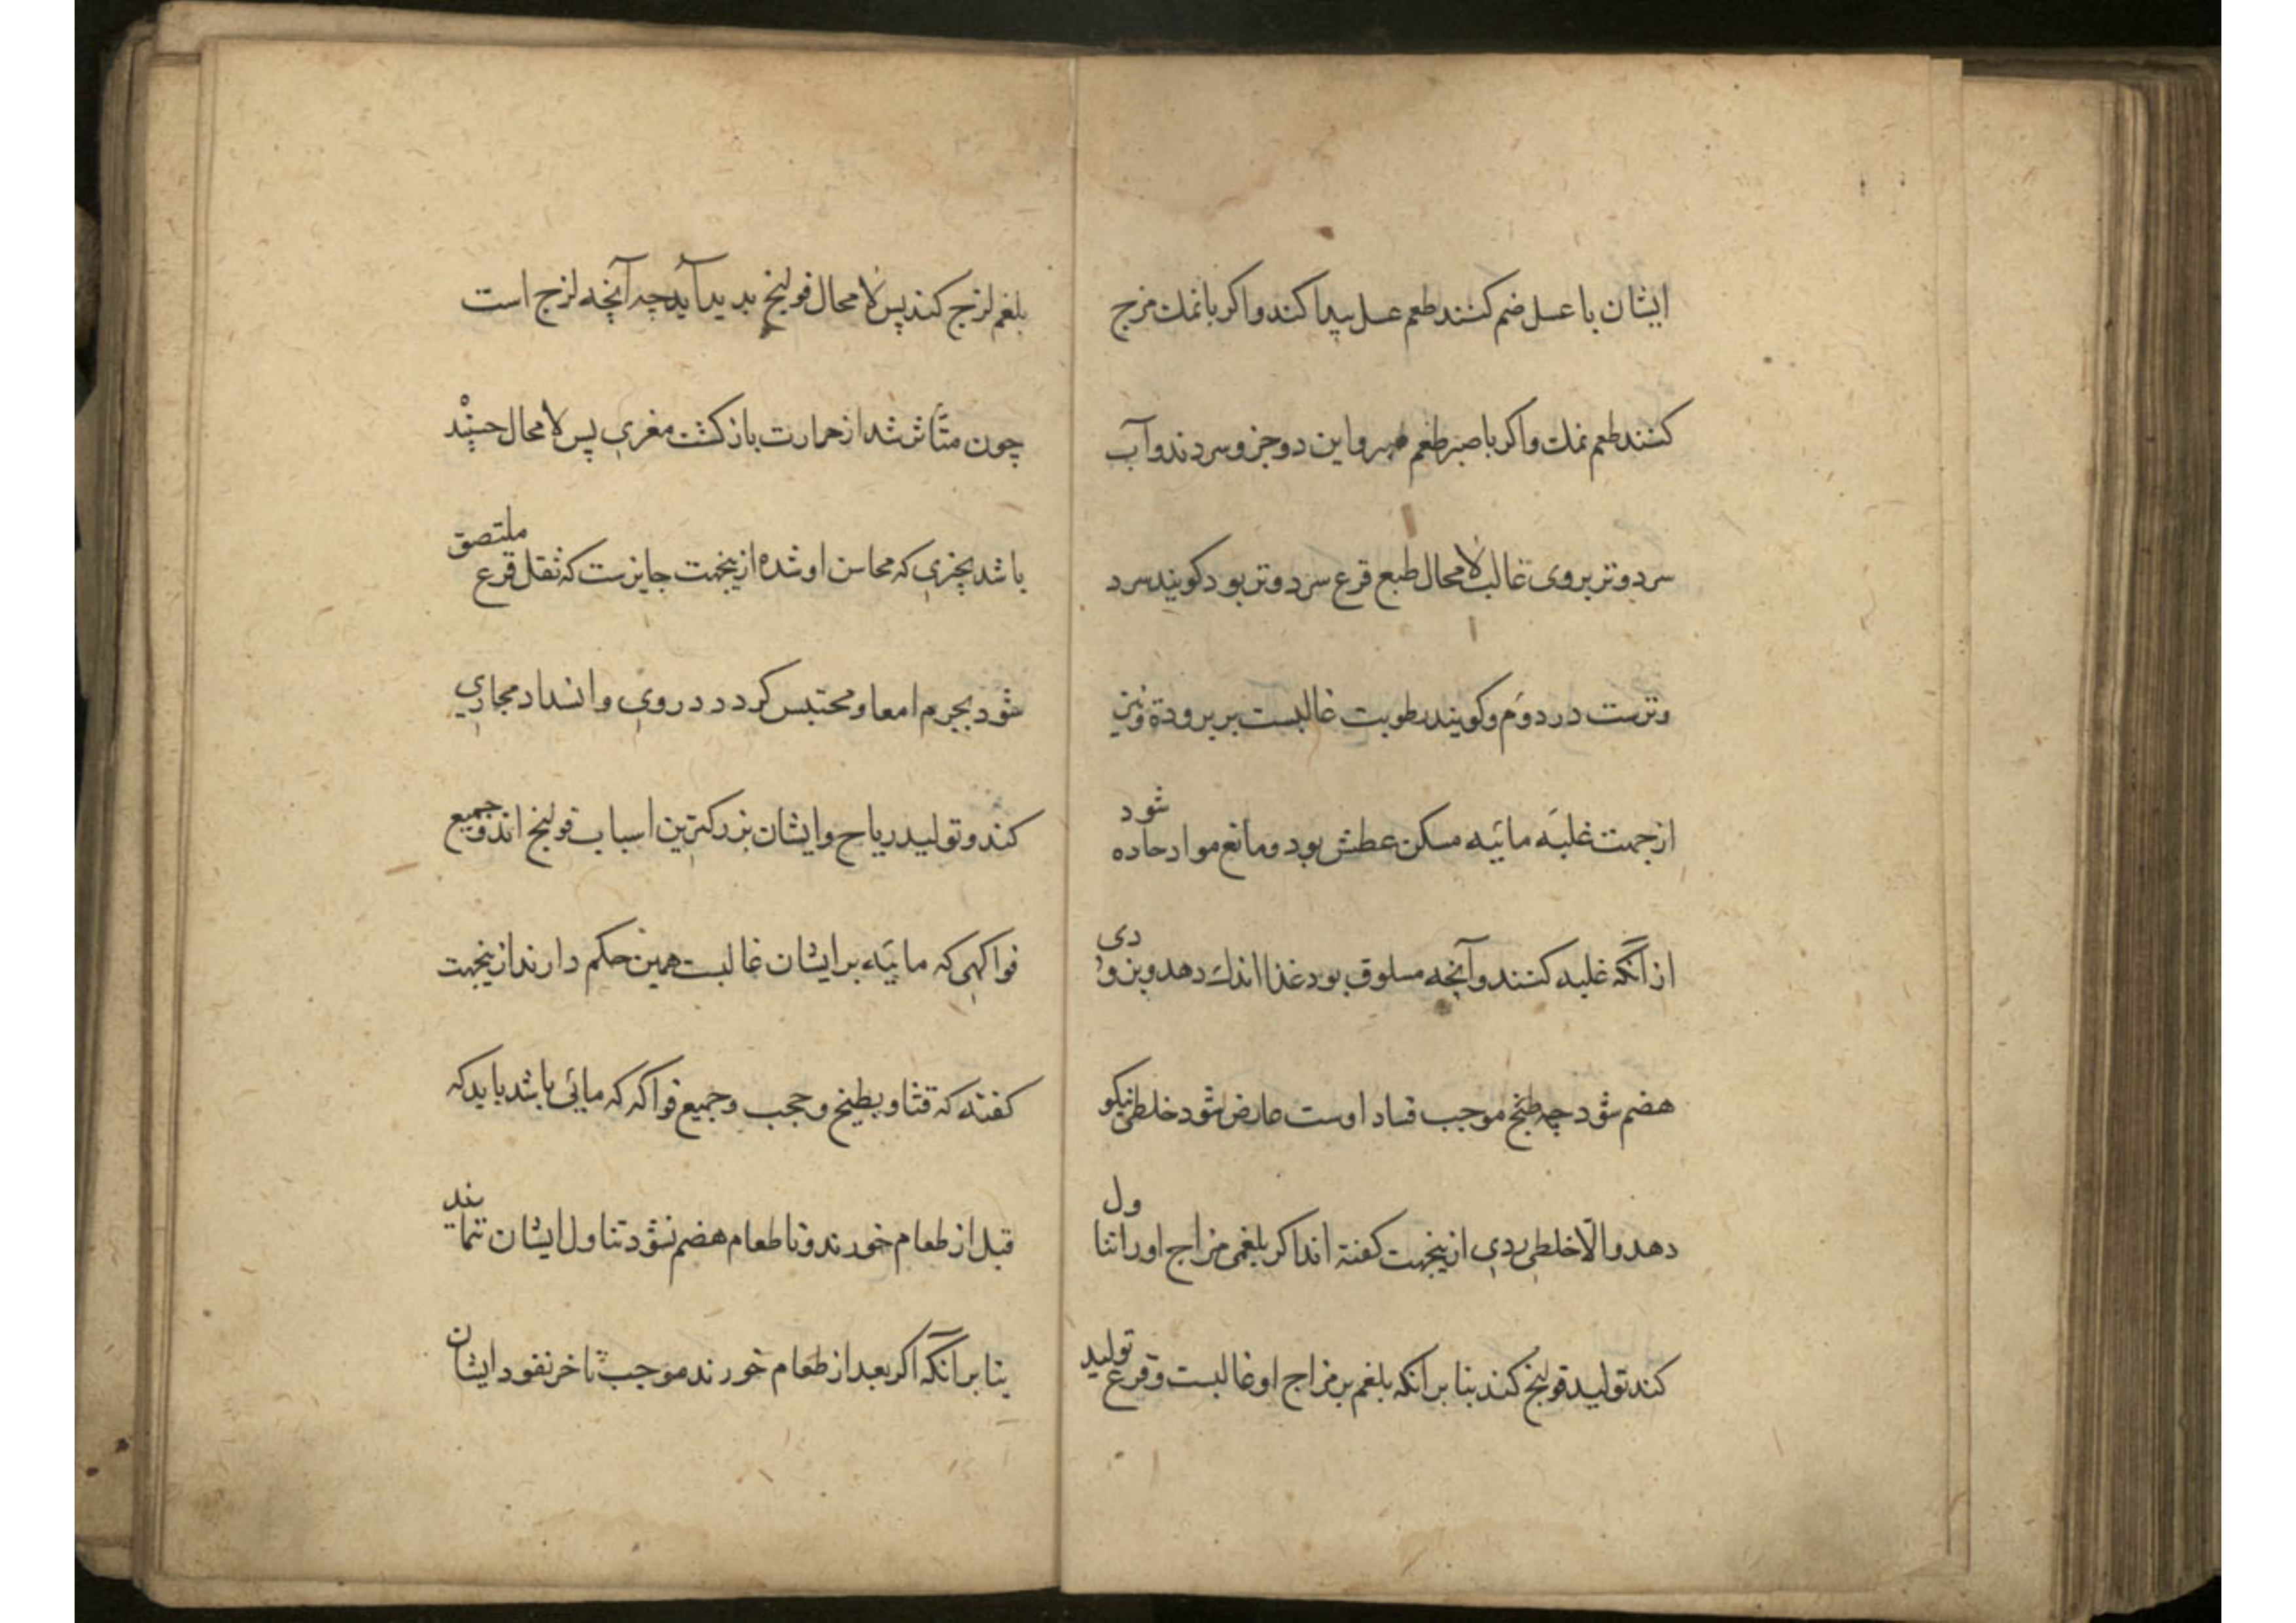 ایشان با عسل ضم کنند طعم عسل پیدا کند واکر با نمك مزج
کنند طعم نمك واکر با صبر طعم صبر واین دو جزو سردند وآب
سرد وتر بروی غالب لامحال طبع قرع سرد وتر بود کویند سرد
وترست در دوم وکویند رطوبت غالبست بر برودة ونیز
ازجهت غلبه مائیه مسکن عطش بود ومانع مواد حاده شود
از آنکه غلبه کنند وآنچه مسلوق بود غذا اندك دهد وبزودی
هضم شود چه طبخ موجب فساد اوست عارض شود خلطی نیکو
دهد والّا خلطی ردی ازینجهت کفته اند اکر بلغمی مزاج اورا تناول
کند تولید قولنج کند بنا برانکه بلغم بر مزاج او غالبست وقرع تولید
بلغم لزج کند پس لامحال قولنج بدید آید چه آنچه لزج است
چون متأثر شد از حرارت باز کشت مغری پس لامحال جسپنْد
باشد بچیزی که محاسن او شده ازینجهت جایزست که ثقل قرع ملتصق
شود بجرم امعا ومحتبس کردد در وی وانسداد مجاری
کند وتولید ریاح وایشان بزرکترین اسباب قولنج اند وجمیع
فواکهی که مائیه بر ایشان غالبست همین حکم دارند ازینجهت
کفته که قثا وبطیخ و حجب وجمیع فواکه که مائی باشد باید که
قبل از طعام خورند وتا طعام هضم نشود تناول ایشان ننمایند
بنا بر آنکه اکر بعد از طعام خورند موجب تاخر نفود ایشان